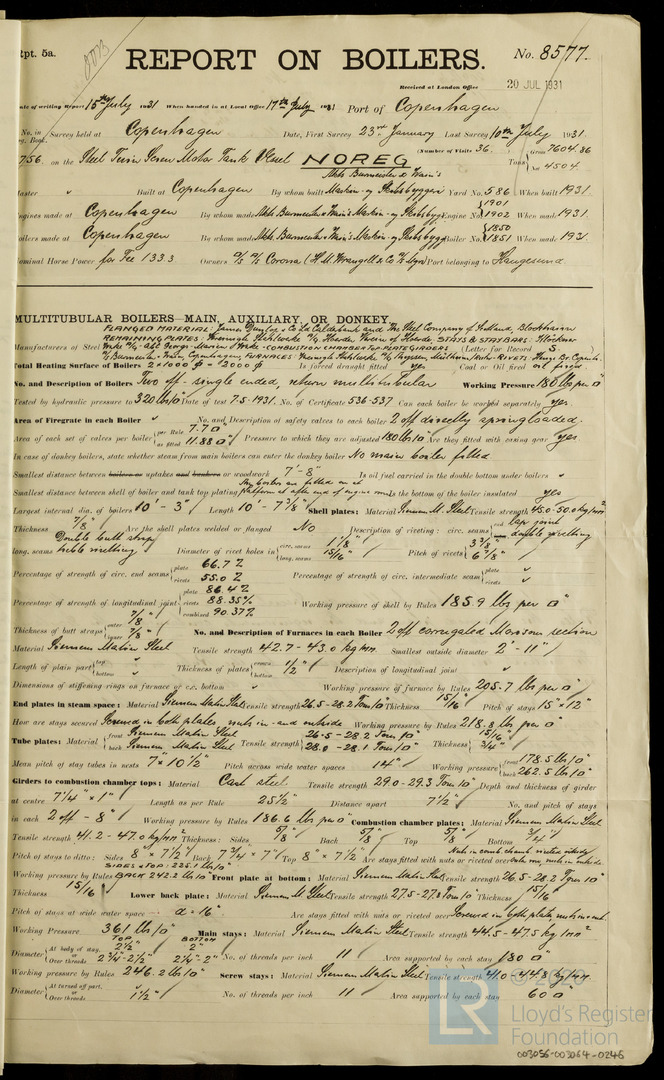 Rpt. 5a.
REPORT ON BOILERS.
No. 8577.
Received at London Office 20 JUL 1931
Date of writing Report 15th July 1931 When handed in at Local Office 17th July 1931 Port of Copenhagen
No. in Reg. Book. Survey held at Copenhagen Date, First Survey 23rd January Last Survey 10th July 1931
756 on the Steel Twin Screw Motor Tank Vessel NOREG (Number of Visits 36 Tons Gross 7604.86 Net 4504
Master Built at Copenhagen By whom built Akts Burmeister & Wain's Maskin- og Skibsbyggeri Yard No. 586 When built 1931.
Engines made at Copenhagen By whom made Akts Burmeister & Wain's Maskin- og Skibsbygg Engine No. 1901 1902 When made 1931.
Boilers made at Copenhagen By whom made Akts Burmeister & Wain's Maskin- og Skibsbygg Boiler No. 1850 1851 When made 1931
Nominal Horse Power for Fee 1333 Owners Corona (H. M. Wrangell & Co Port belonging to Haugesund
MULTITUBULAR BOILERS—MAIN, AUXILIARY, OR DONKEY.
FLANGED MATERIAL: James Dunlop & Co Ld Calderbank and The Steel Company of Scotland, Blochairn
REMAINING PLATES: STAYS & STAYBARS:
Manufacturers of Steel COMBUSTION CHAMBER TOP PLATE GIRDERS (Letter for Record S
Burmeister & Wain, Copenhagen, FURNACES: RIVETS:
Total Heating Surface of Boilers 2 × 1000 = 2000 Is forced draught fitted yes Coal or Oil fired oil fired
No. and Description of Boilers Two off - single ended, return multitubular Working Pressure 180 lbs per □"
Tested by hydraulic pressure to 320 lbs/□" Date of test 7.5.1931. No. of Certificate 536-537 Can each boiler be worked separately yes
Area of Firegrate in each Boiler No. and Description of safety valves to each boiler 2 off directly spring loaded.
Area of each set of valves per boiler per Rule 7.7 □" as fitted 11.88 □" Pressure to which they are adjusted 180 lbs/□" Are they fitted with easing gear yes
In case of donkey boilers, state whether steam from main boilers can enter the donkey boiler No main boiler fitted
Smallest distance between boilers or uptakes and bunkers or woodwork 7'-8" Is oil fuel carried in the double bottom under boilers
Smallest distance between shell of boiler and tank top plating The boilers are fitted on a platform at after end of engine room Is the bottom of the boiler insulated yes
Largest internal dia. of boilers 10'-3" Length 10'-7 3/8" Shell plates: Material Siemens M. Steel Tensile strength 45.0-50.0 kg/mm²
Thickness 7/8" Are the shell plates welded or flanged No Description of riveting: circ. seams end lap joint double rivetting
long. seams Double butt straps treble rivetting Diameter of rivet holes in circ. seams 1 1/8" long. seams 15/16" Pitch of rivets 3 3/8" 6 3/8"
Percentage of strength of circ. end seams plate 66.7 % rivets 55.0 % Percentage of strength of circ. intermediate seam plate rivets
Percentage of strength of longitudinal joint plate 86.4 % rivets 88.35 % combined 90.37 % Working pressure of shell by Rules 185.9 lbs per □"
Thickness of butt straps outer 7/8" inner 7/8" No. and Description of Furnaces in each Boiler 2 off corrugated Morison section
Material Siemens Martin Steel Tensile strength 42.7-43.0 kg/mm² Smallest outside diameter 2'-11"
Length of plain part top bottom Thickness of plates crown bottom 1/2" Description of longitudinal joint
Dimensions of stiffening rings on furnace or c.c. bottom Working pressure of furnace by Rules 205.7 lbs per □"
End plates in steam space: Material Siemens Martin Steel Tensile strength 26.5-28.2 Tons/□" Thickness 15/16" Pitch of stays 15" × 12"
How are stays secured Screwed in both plates, nuts in- and outside Working pressure by Rules 218.8 lbs per □"
Tube plates: Material front Siemens Martin Steel back Siemens Martin Steel Tensile strength 26.5-28.2 Tons/□" 28.0-28.1 Tons/□" Thickness 15/16" 3/4"
Mean pitch of stay tubes in nests 7" × 10 1/2" Pitch across wide water spaces 14" Working pressure front 178.5 lbs/□" back 262.5 lbs/□"
Girders to combustion chamber tops: Material Cast steel Tensile strength 29.0-29.3 Tons/□" Depth and thickness of girder
at centre 7 1/4" × 1" Length as per Rule 25 1/2" Distance apart 7 1/2" No. and pitch of stays
in each 2 off - 8" Working pressure by Rules 186.6 lbs per □" Combustion chamber plates: Material Siemens Martin Steel
Tensile strength 41.2-47.0 kg/mm² Thickness: Sides 5/8" Back 5/8" Top 5/8" Bottom 3/4"
Pitch of stays to ditto: Sides 8" × 7 1/2" Back 7 3/4" × 7" Top 8" × 7 1/2" Are stays fitted with nuts or riveted over
Working pressure by Rules SIDES & TOP: 225.1 lbs/□" BACK 242.2 lbs/□" Front plate at bottom: Material Siemens Martin Steel Tensile strength 26.5-28.2 Tons/□"
Thickness 15/16" Lower back plate: Material Siemens M. Steel Tensile strength 27.5-27.8 Tons/□" Thickness 15/16"
Pitch of stays at wide water space d = 16" Are stays fitted with nuts or riveted over Screwed in both plates nuts in & out
Working Pressure 361 lbs/□" Main stays: Material Siemens Martin Steel Tensile strength 44.5-47.5 kg/mm²
Diameter At body of stay, or Over threads TOP 2 1/2" 2 3/4"-2 1/2" BOTTOM 2" 2 1/4"-2" No. of threads per inch 11 Area supported by each stay 180 □"
Working pressure by Rules 246.2 lbs/□" Screw stays: Material Siemens Martin Steel Tensile strength 41.0-44.8 kg/mm²
Diameter At turned off part, or Over threads 1 1/2" No. of threads per inch 11 Area supported by each stay 60 □"
© 2020
LR
Lloyd's Register
Foundation
003056-003064-0246